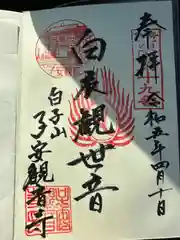 奉拝
令和五年四月十日
白衣観世音
白子山
子安観音寺